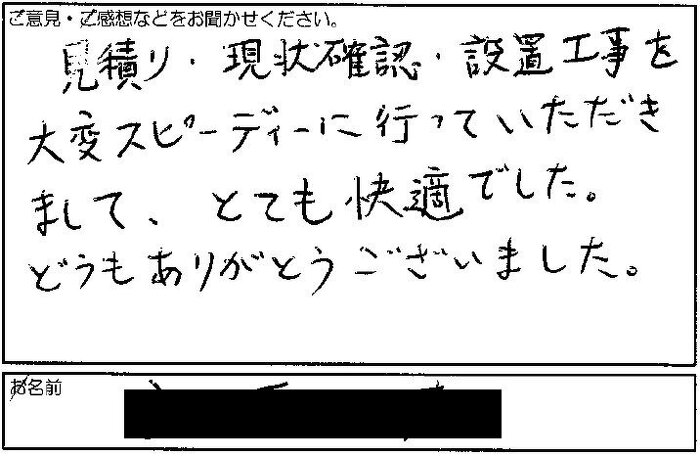 ご意見・ご感想などをお聞かせください。
見積り・現状確認・設置工事を
大変スピーディーに行っていただき
まして、とても快適でした。
どうもありがとうございました。
お名前